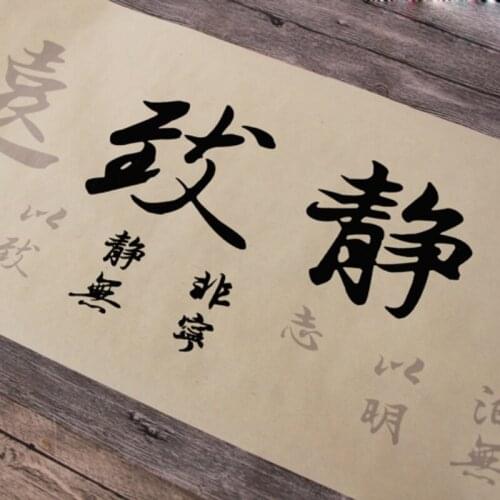 静致遠
泊無
以明
志
非寧
静無
以致